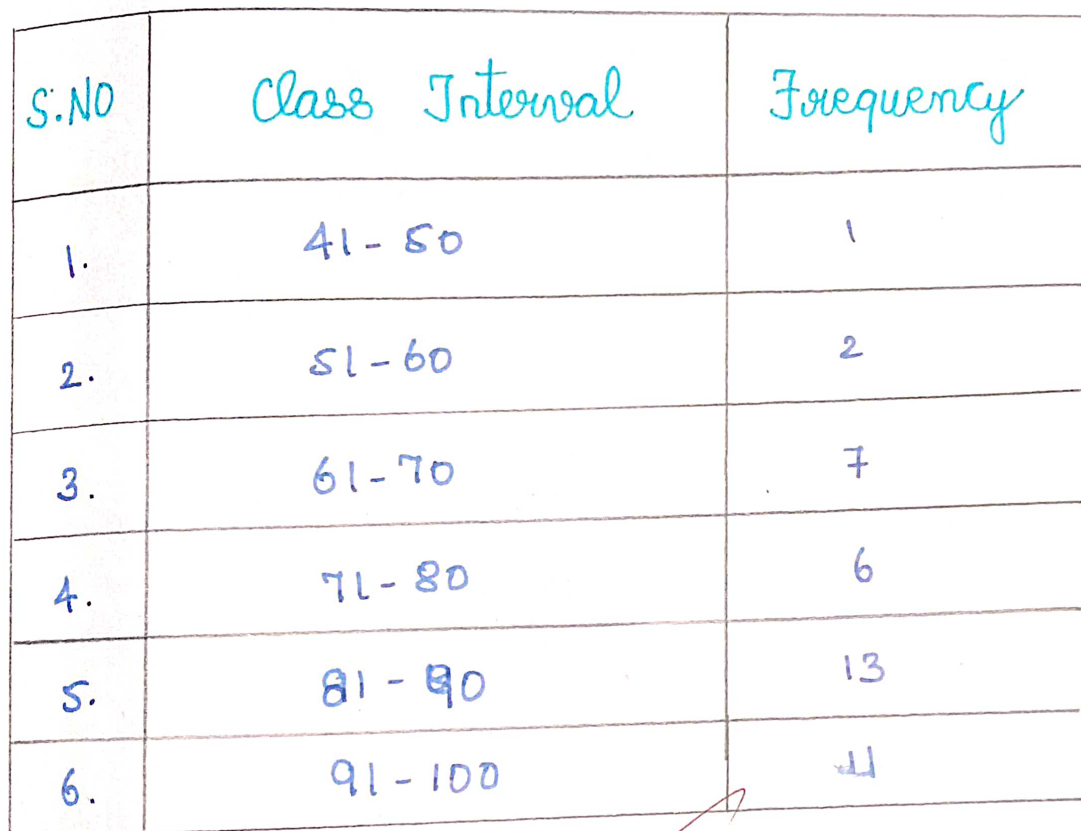 S.NO Class Interval Frequency
1. 41-50 1
2. 51-60 2
3. 61-70 7
4. 71-80 6
5. 81-90 13
6. 91-100 11